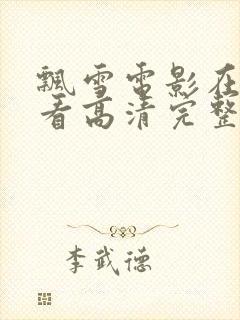 飘雪电影在
看高清完整
李武德